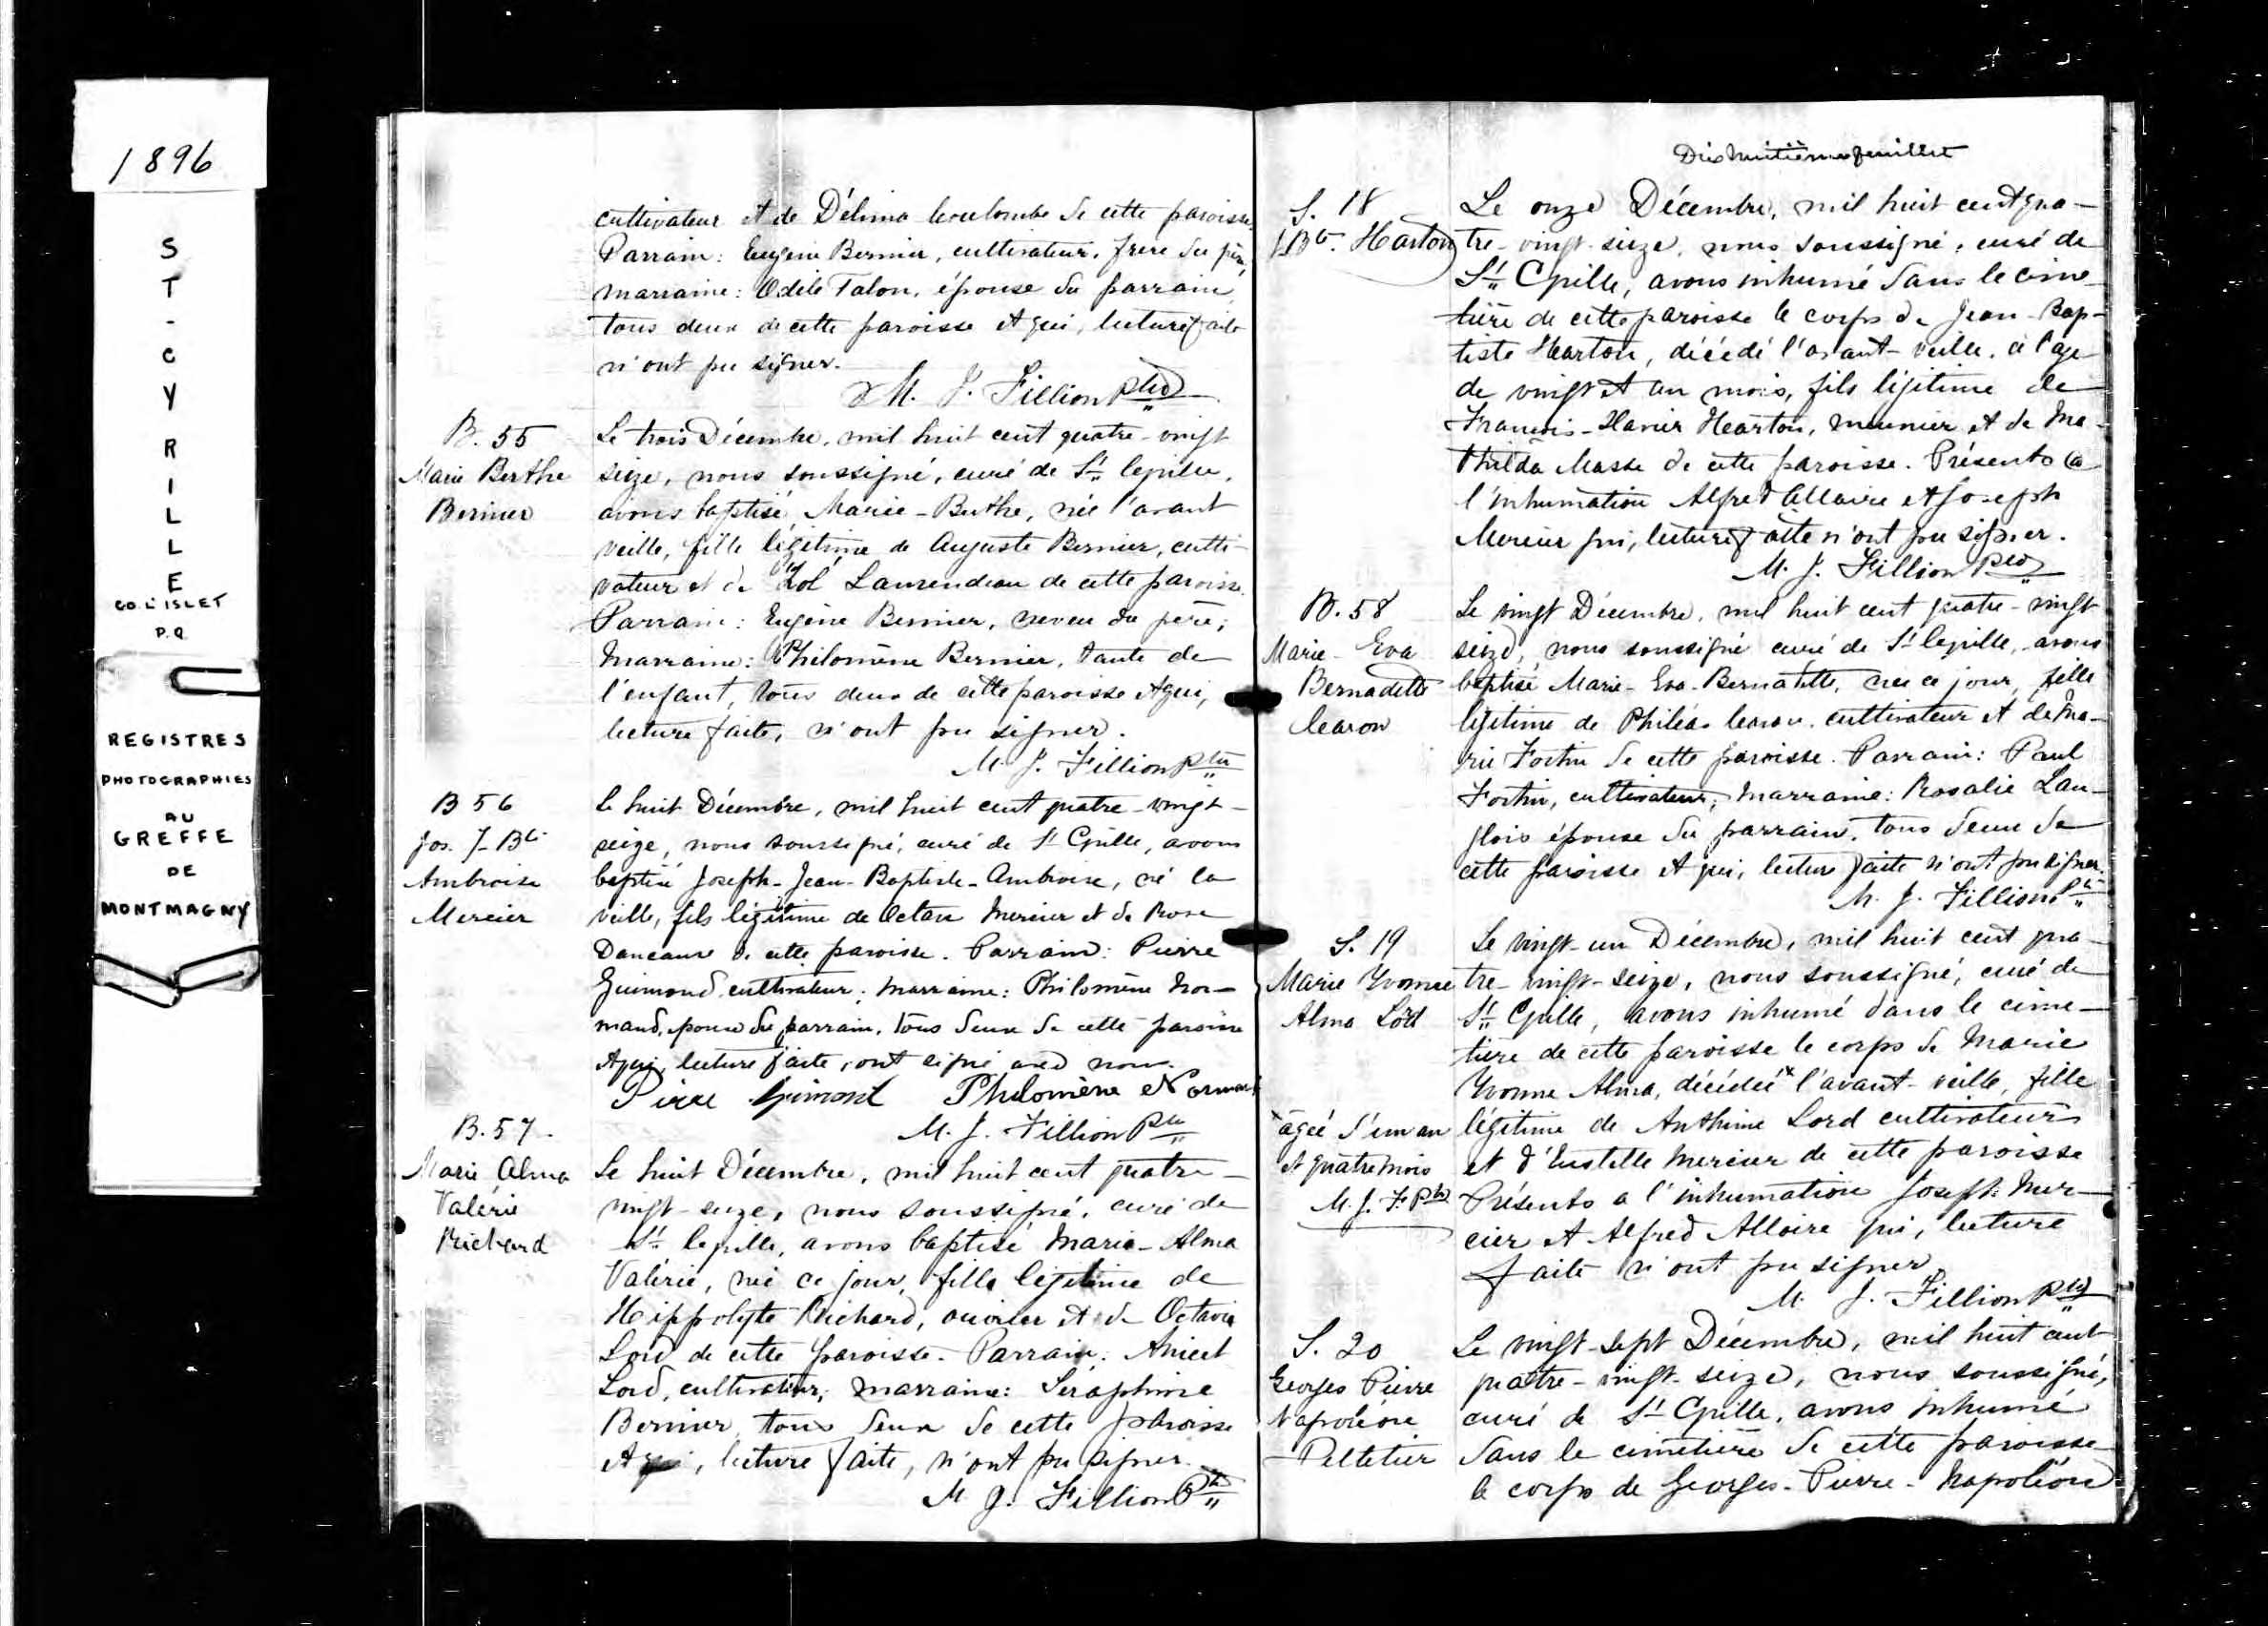 1896
ST-CYRILLE
CO. L'ISLET
P.Q.
REGISTRES
PHOTOGRAPHIES
AU
GREFFE
DE
MONTMAGNY
cultivateur et de Délima Coulombe de cette paroisse.
Parrain: Eugène Bernier, cultivateur, frère du père,
marraine: Odile Talon, épouse du parrain,
tous deux de cette paroisse et qui, lecture faite
n'ont pu signer.
M. J. Fillion Ptre
B. 55
Marie Berthe
Bernier
Le trois Décembre, mil huit cent quatre-vingt
seize, nous soussigné, curé de St Cyrille,
avons baptisé, Marie-Berthe, née l'avant
veille, fille légitime de Auguste Bernier, culti-
vateur et de Laurendeau de cette paroisse.
Parrain: Eugène Bernier, neveu du père;
Marraine: Philomène Bernier, tante de
l'enfant, tous deux de cette paroisse et qui,
lecture faite, n'ont pu signer.
M. J. Fillion Ptre
B 56
Jos. J-Bte
Ambroise
Mercier
Le huit Décembre, mil huit cent quatre-vingt-
seize, nous soussigné, curé de St Cyrille, avons
baptisé Joseph-Jean-Baptiste-Ambroise, né la
veille, fils légitime de Octave Mercier et de Rose
Dancause de cette paroisse. Parrain: Pierre
Guimond, cultivateur; marraine: Philomène Nor-
mand, épouse du parrain, tous deux de cette paroisse
et qui, lecture faite, ont signé avec nous.
Pierre Guimont Philomène Normand
M. J. Fillion Ptre
B. 57.
Marie Alma
Valérie
Richard
Le huit Décembre, mil huit cent quatre-
vingt-seize, nous soussigné, curé de
St Cyrille, avons baptisé Marie-Alma
Valérie, née ce jour, fille légitime de
Hippolyte Richard, ouvrier et de Octavie
Lord de cette paroisse. Parrain: Anicet
Lord, cultivateur; marraine: Séraphine
Bernier, tous deux de cette paroisse
et qui, lecture faite, n'ont pu signer.
M. J. Fillion Ptre
Dix huitième feuillet
S. 18
J. Bte. Harton
Le onze Décembre, mil huit cent qua-
tre-vingt-seize, nous soussigné, curé de
St Cyrille, avons inhumé dans le cime-
tière de cette paroisse le corps de Jean-Bap-
tiste Harton, décédé l'avant-veille, à l'age
de vingt et un mois, fils légitime de
François-Xavier Harton, meunier et de Ma-
thilda Masse de cette paroisse. Présents à
l'inhumation Alfred Allaire et Joseph
Mercier qui, lecture faite n'ont pu signer.
M. J. Fillion Ptre
B. 58
Marie-Eva
Bernadette
Caron
Le vingt Décembre, mil huit cent quatre-vingt
seize, nous soussigné curé de St Cyrille, avons
baptisé Marie-Eva-Bernadette, née ce jour, fille
légitime de Philéas Caron, cultivateur et de Ma-
rie Fortin de cette paroisse. Parrain: Paul
Fortin, cultivateur; marraine: Rosalie Lan-
glois épouse du parrain, tous deux de
cette paroisse et qui, lecture faite n'ont pu signer.
M. J. Fillion Ptre
S. 19
Marie Yvonne
Alma Lord
Le vingt-un Décembre, mil huit cent qua-
tre-vingt-seize, nous soussigné, curé de
St Cyrille, avons inhumé dans le cime-
tière de cette paroisse le corps de Marie
Yvonne Alma, décédée x l'avant-veille, fille
légitime de Anthime Lord cultivateur
et d'Eustelle Mercier de cette paroisse
Présents a l'inhumation Joseph Mer-
cier et Alfred Allaire qui, lecture
faite n'ont pu signer
M. J. Fillion Ptre
x agée d'un an
et quatre mois
M. J. F. Ptre
S. 20
Georges Pierre
Napoléon
Pelletier
Le vingt-sept Décembre, mil huit cent
quatre-vingt-seize, nous soussigné,
curé de St Cyrille, avons inhumé
dans le cimetière de cette paroisse
le corps de Georges-Pierre-Napoléon